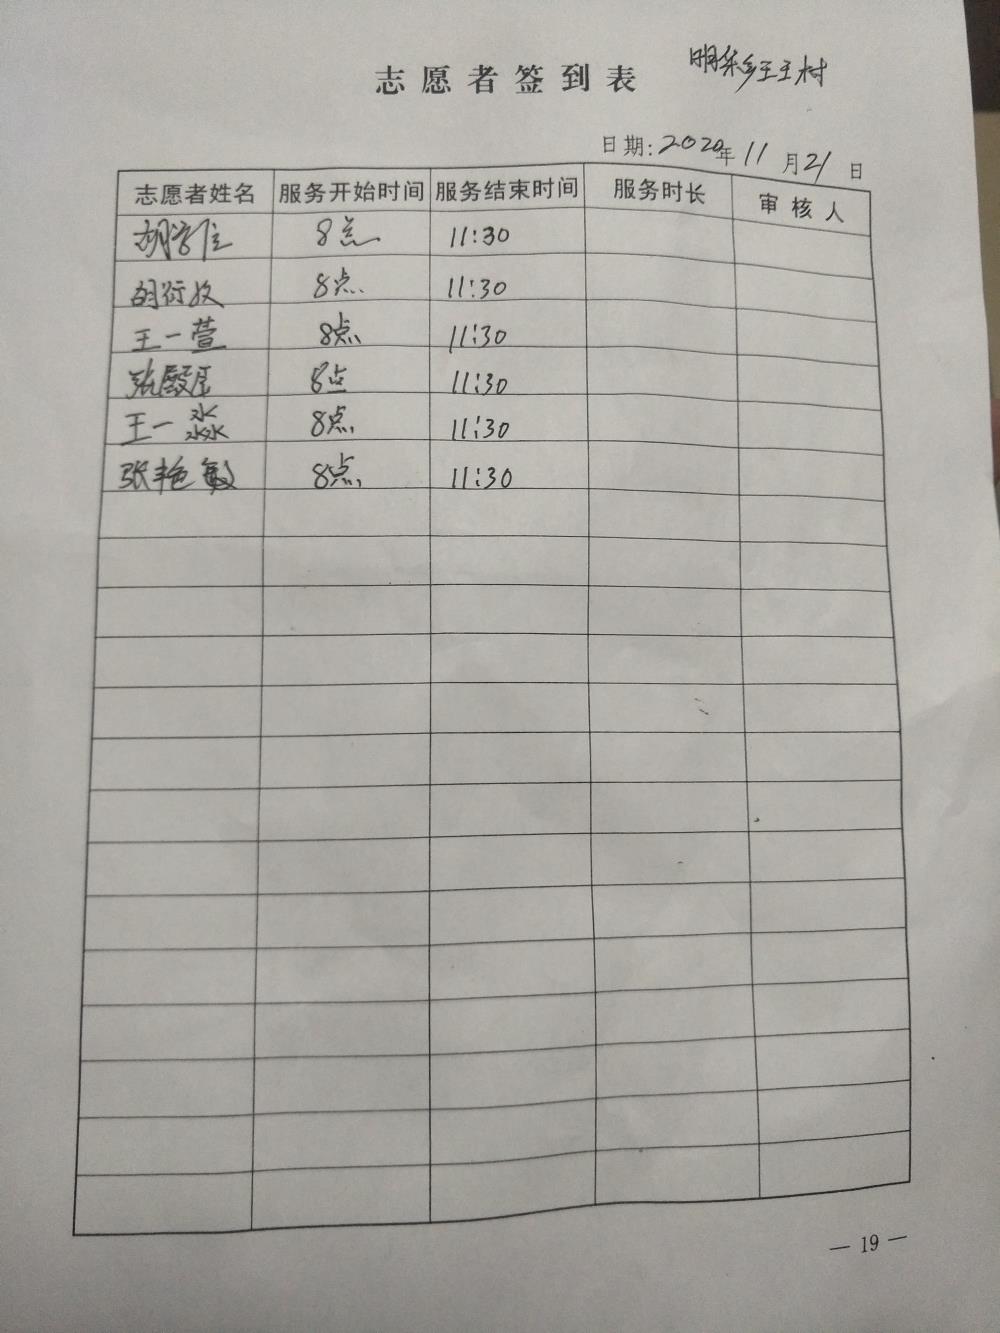 志愿者签到表 明乐乡王王村
日期:2020年11月21日
志愿者姓名 服务开始时间 服务结束时间 服务时长 审核人
8点 11:30
8点 11:30
王一萱 8点 11:30
张殿 8点 11:30
王一淼 8点 11:30
张艳敏 8点 11:30
— 19 —